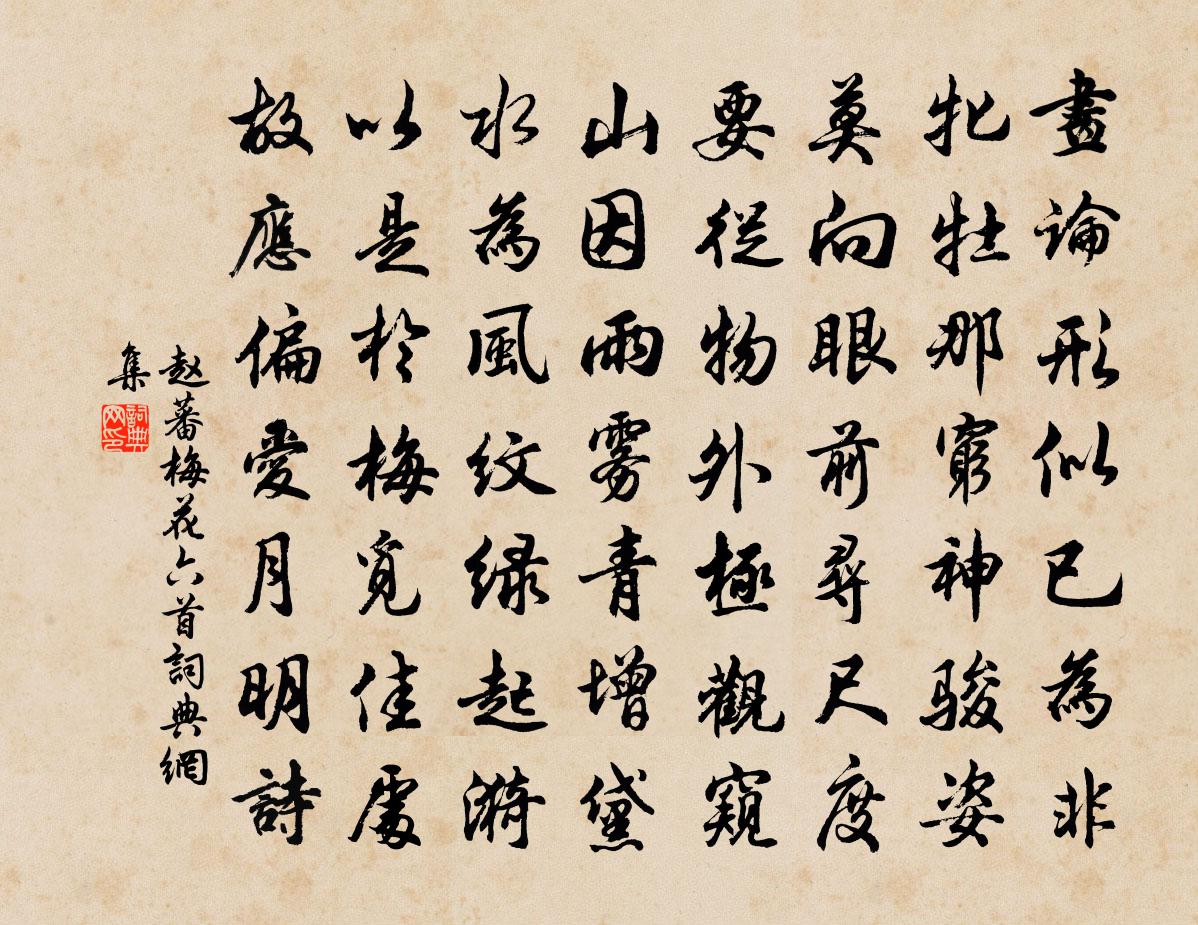 畫論形似已為非
牝牡那窮神駿姿
莫向眼前尋尺度
要從物外極觀窺
山因雨雾青增黛
水為風紋绿起漪
以是於梅覓佳處
故應偏愛月明詩
赵蕃梅花六首詞典網
集
詞典网印